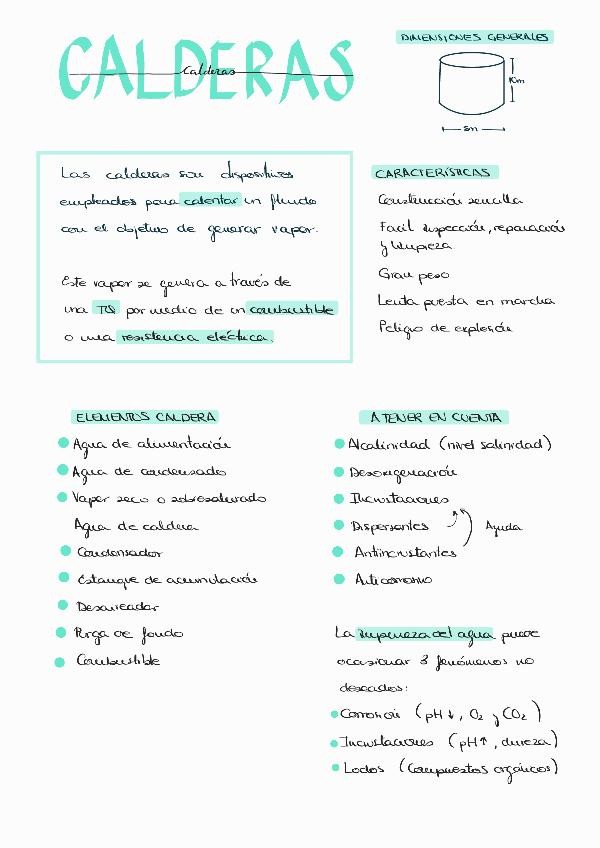 CALDERAS
Calderas
DIMENSIONES GENERALES
10m
5m
Las calderas son dispositivos
empleados para calentar un fluido
con el objetivo de generar vapor.
Este vapor se genera a través de
una TQ por medio de un combustible
o una resistencia eléctrica.
CARACTERÍSTICAS
Construcción sencilla
Facil inspección, reparación
y limpieza
Gran peso
Lenta puesta en marcha
Peligo de explosión
ELEMENTOS CALDERA
Agua de alimentación
Agua de condensado
Vapor seco o sobresaturado
Agua de caldera
Condensador
Estanque de acumulación
Desaireador
Purga de fondo
Combustible
A TENER EN CUENTA
Alcalinidad (nivel salinidad)
Desoxigenación
Incrustaciones
Dispersantes
Ayuda
Antiincrustantes
Anticorrosivo
La impureza del agua puede
ocasionar 3 fenómenos no
deseados:
Corrosión (pH↓, O₂ y CO₂)
Incrustaciones (pH↑, dureza)
Lodos (Compuestos orgánicos)